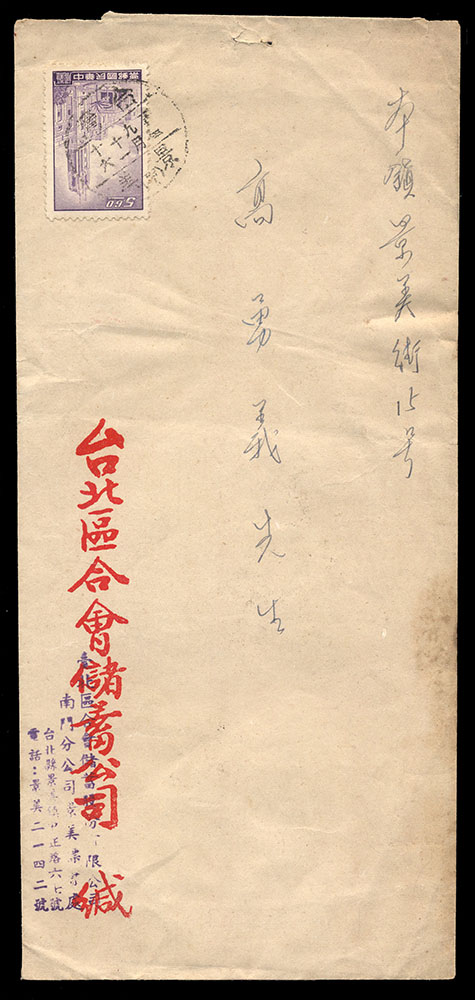 本鎮景美街15号
高勇義先生
台北區合會儲蓄公司 緘
臺北區合會儲蓄股份有限公司
南門分公司景美
台北縣景美鎮中正路六七號
電話：景美二一四二號
中華民國郵票
5.60